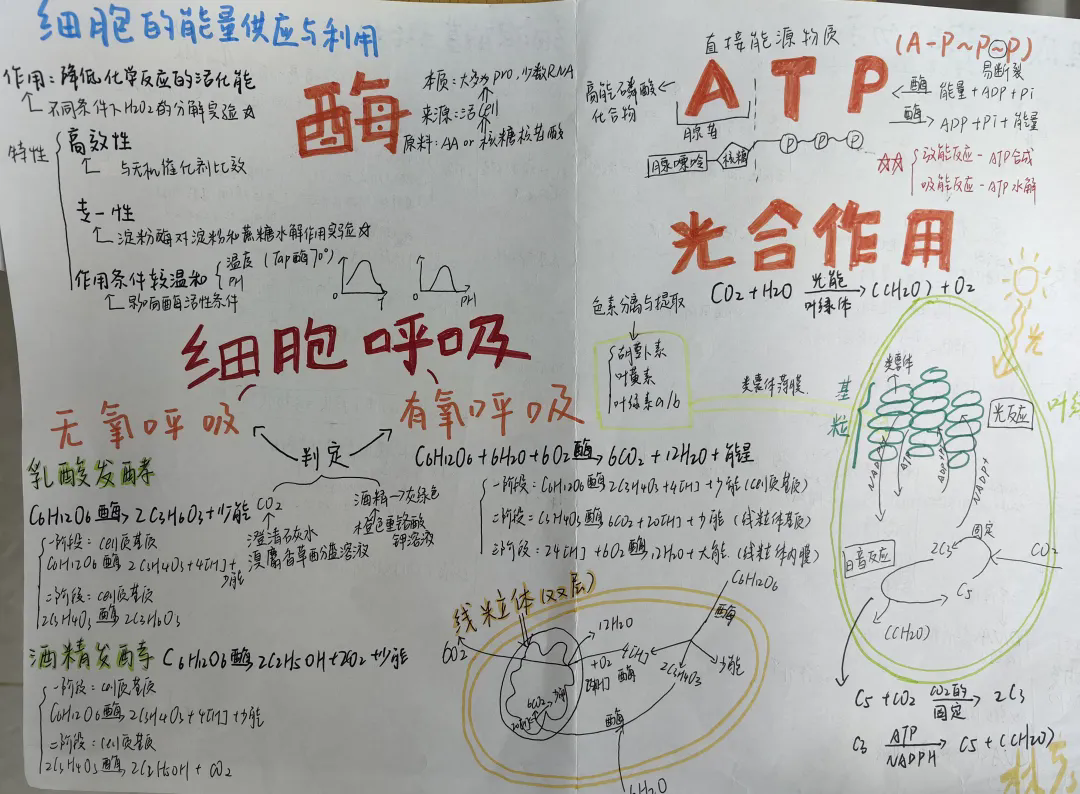 细胞的能量供应与利用
酶
作用：降低化学反应的活化能
不同条件下H2O2的分解实验☆
特性
高效性
与无机催化剂比较
专一性
淀粉酶对淀粉和蔗糖水解作用实验☆
作用条件较温和
温度（Tap酶70°）
PH
影响酶活性条件
0
T
0
PH
本质：大多数pro，少数RNA
来源：活cell
原料：AA or 核糖核苷酸
直接能源物质
ATP
（A-P~P~P）
易断裂
高能磷酸
化合物
腺苷
腺嘌呤
核糖
P
P
P
酶
能量+ADP+Pi
酶
ADP+Pi+能量
☆☆
放能反应-ATP合成
吸能反应-ATP水解
细胞呼吸
无氧呼吸
有氧呼吸
判定
CO2
澄清石灰水
溴麝香草酚蓝溶液
酒精→灰绿色
橙色重铬酸
钾溶液
乳酸发酵
C6H12O6 酶→ 2C3H6O3+少能
一阶段：cell质基质
C6H12O6 酶 2C3H4O3+4[H]+
少能
二阶段：cell质基质
2C3H4O3 酶 2C3H6O3
酒精发酵
C6H12O6 酶 2C2H5OH+2CO2+少能
一阶段：cell质基质
C6H12O6 酶 2C3H4O3+4[H]+少能
二阶段：cell质基质
2C3H4O3 酶 2C2H5OH+CO2
C6H12O6+6H2O+6O2 酶→ 6CO2+12H2O+能量
一阶段：C6H12O6 酶 2C3H4O3+4[H]+少能(cell质基质)
二阶段：C3H4O3 酶 6CO2+20[H]+少能（线粒体基质）
三阶段：24[H]+6O2 酶 12H2O+大能（线粒体内膜）
线粒体（双层）
6O2
12H2O
+O2
24[H]
酶
4[H]
2C3H4O3
C6H12O6
酶
少能
6CO2
酶
6H2O
光合作用
CO2+H2O 光能 叶绿体→ (CH2O)+O2
色素分离与提取
胡萝卜素
叶黄素
叶绿素a/b
类囊体薄膜
类囊体
基粒
光
光反应
ATP
NADP+
暗反应
固定
2C3
CO2
C5
(CH2O)
C5+CO2 CO2的固定→ 2C3
C3 ATP NADPH→ C5+(CH2O)